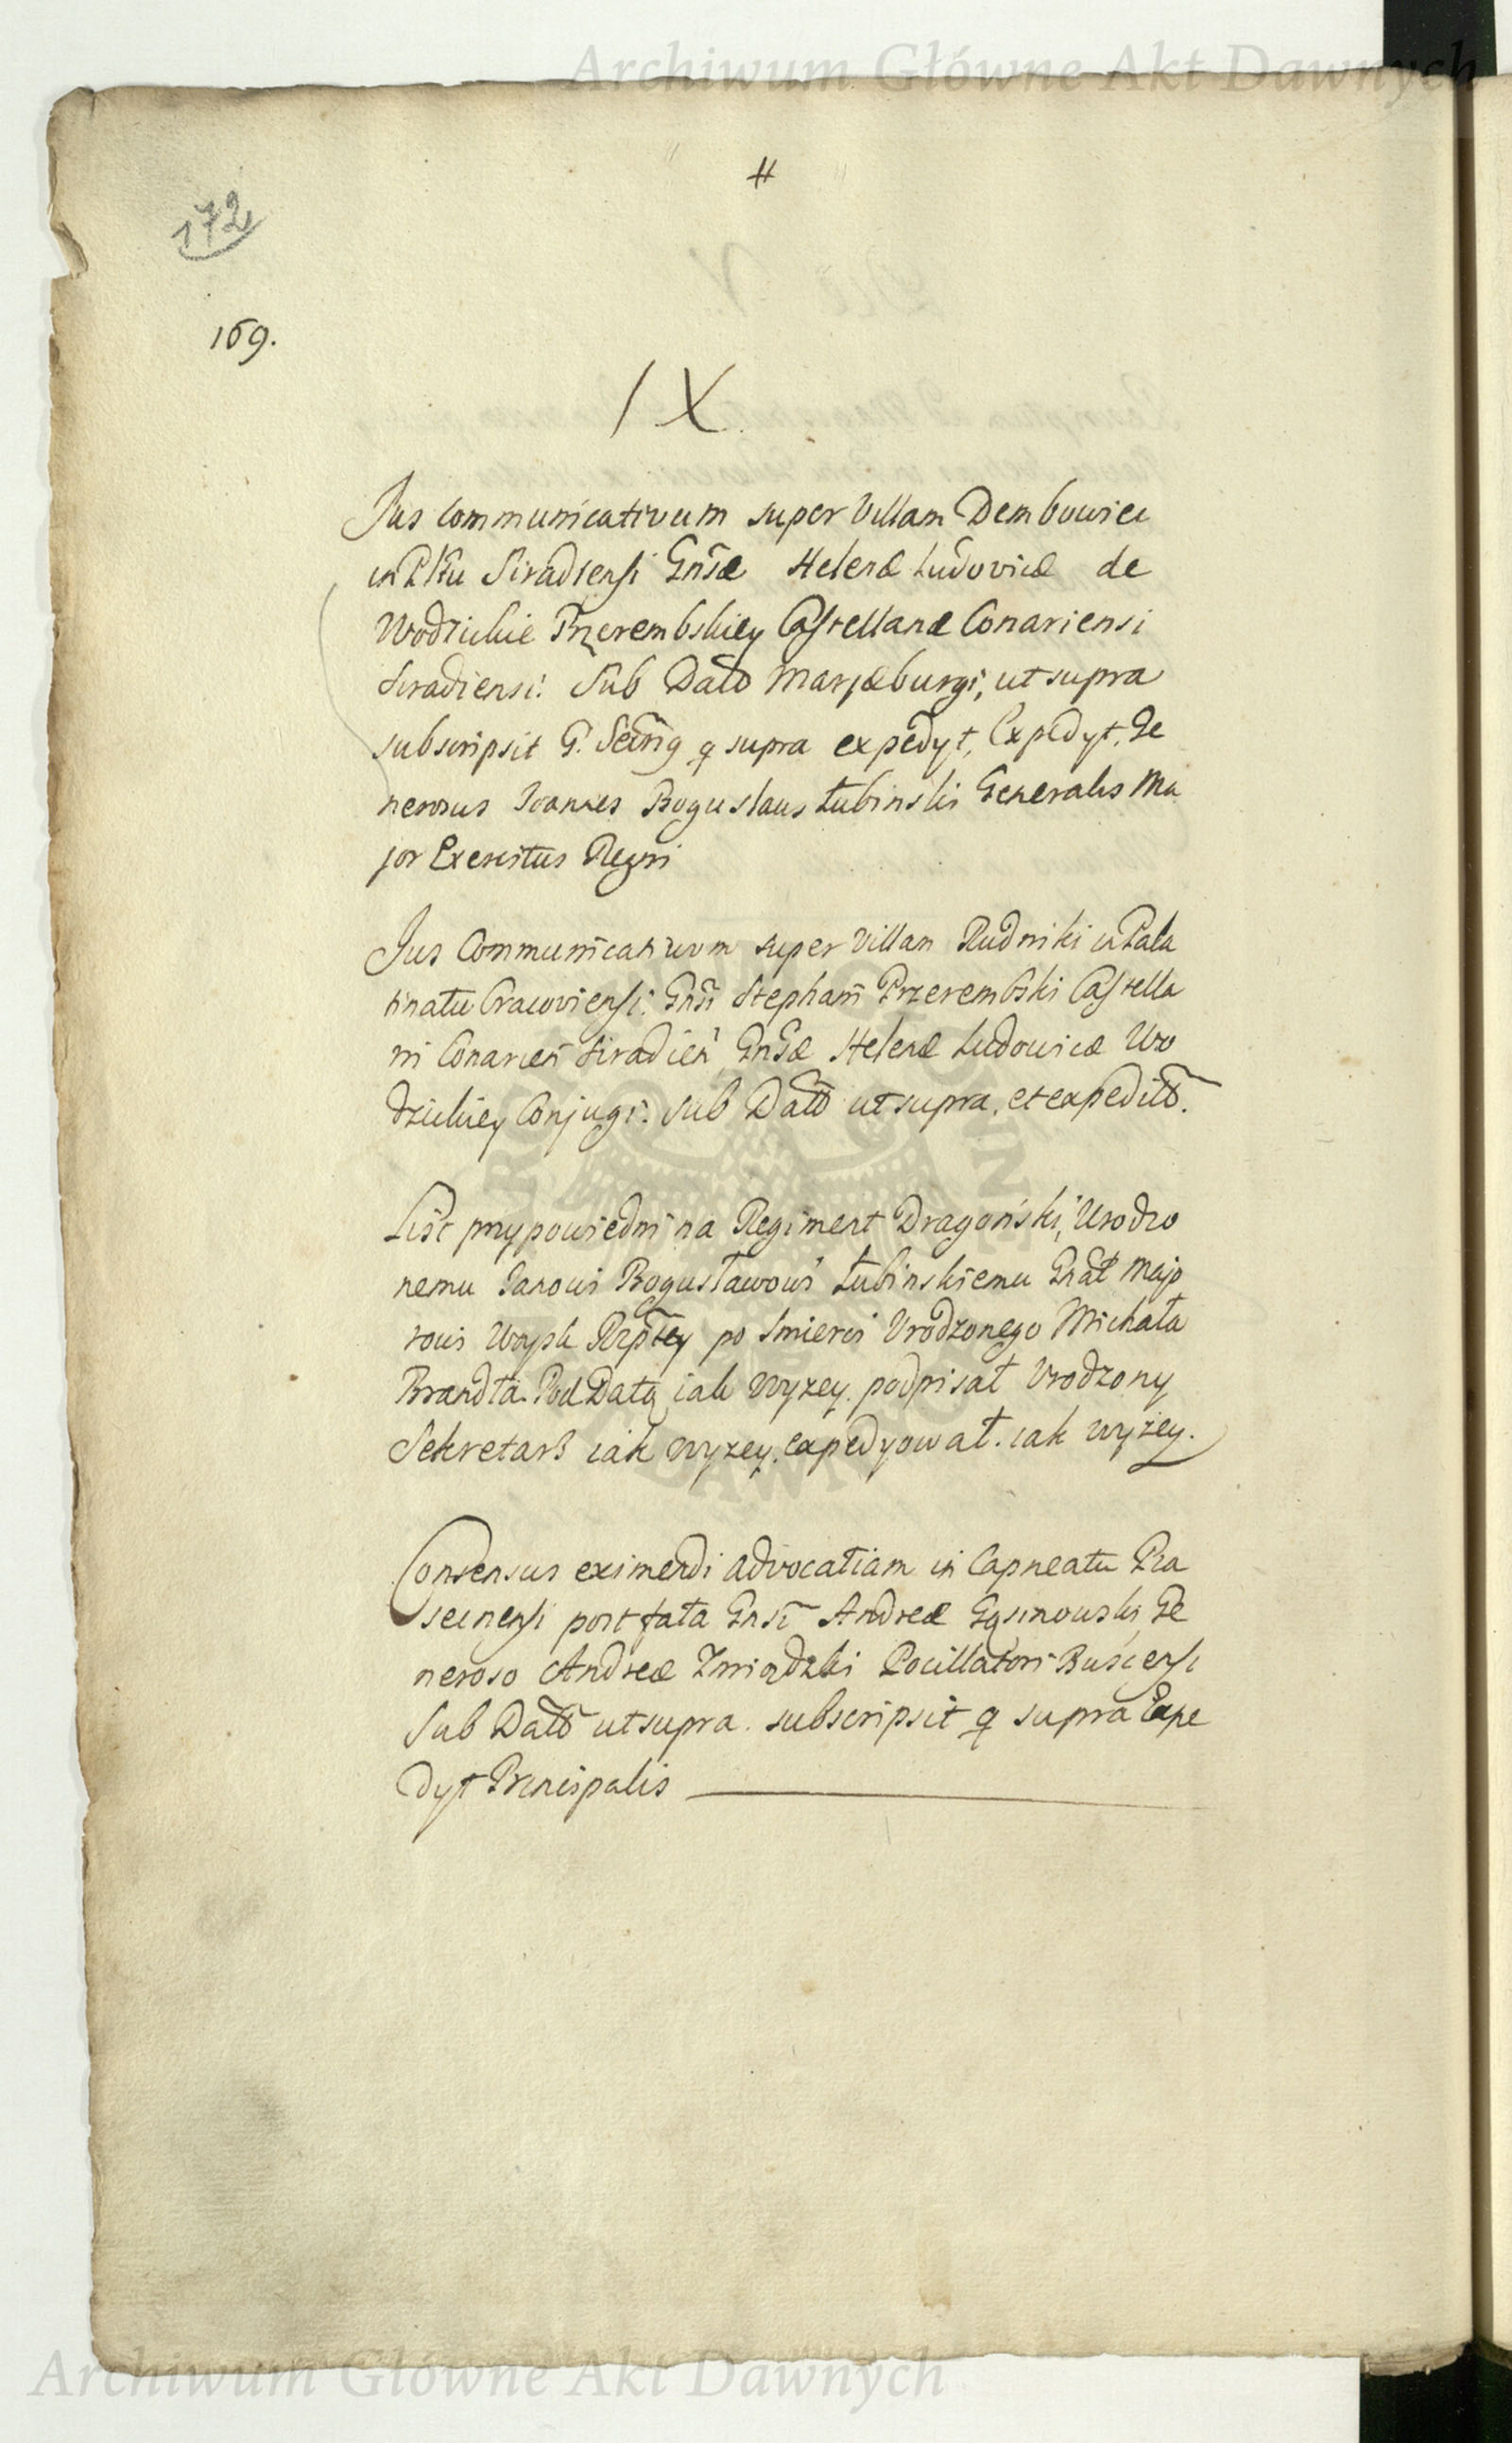 Archiwum Główne Akt Dawnych
#
172
169.
IX
Jus Communicativum super Villam Dembowiec
in Pltu Siradiensi Gnsæ Helenæ Ludovicæ de
Wodzickie Przerembskiey Castellanæ Conariensi
Siradiensi: Sub Datō Marjæburgi, ut supra
subscripsit G. supra expedyt, Expedyt, Ge
nerosus Joannes Boguslaus Łubinski Generalis Ma
jor Exercitus Regni
Jus Communicativum super Villam Rudniki in Pala
tinatu Cracoviensi: Gnsi Stephani Przerembski Castella
ni Conarien Siradien, Gnsæ Helenæ Ludowicæ Wo
dzickiey Conjugi: Sub Datō ut supra, et expeditō.
List przypowiedni na Regiment Dragański, Urodzo
nemu Janowi Bogusławowi Łubinskiemu Gnał Majo
rowi Woysk Rzpltey po Smierci Urodzonego Michała
Brandta. Pod Datą iak wyzey. podpisał Urodzony
Sekretarz iak wyzey. expedyował. iak wyżey.
Consensus eximendi advocatiam in Capneatu
post fata Gnsi Andreæ Gąsinowski, Ge
neroso Andreæ Pocillatori Busiensi
Sub Datō ut supra. subscripsit q supra Expe
dyt Principalis
Archiwum Główne Akt Dawnych